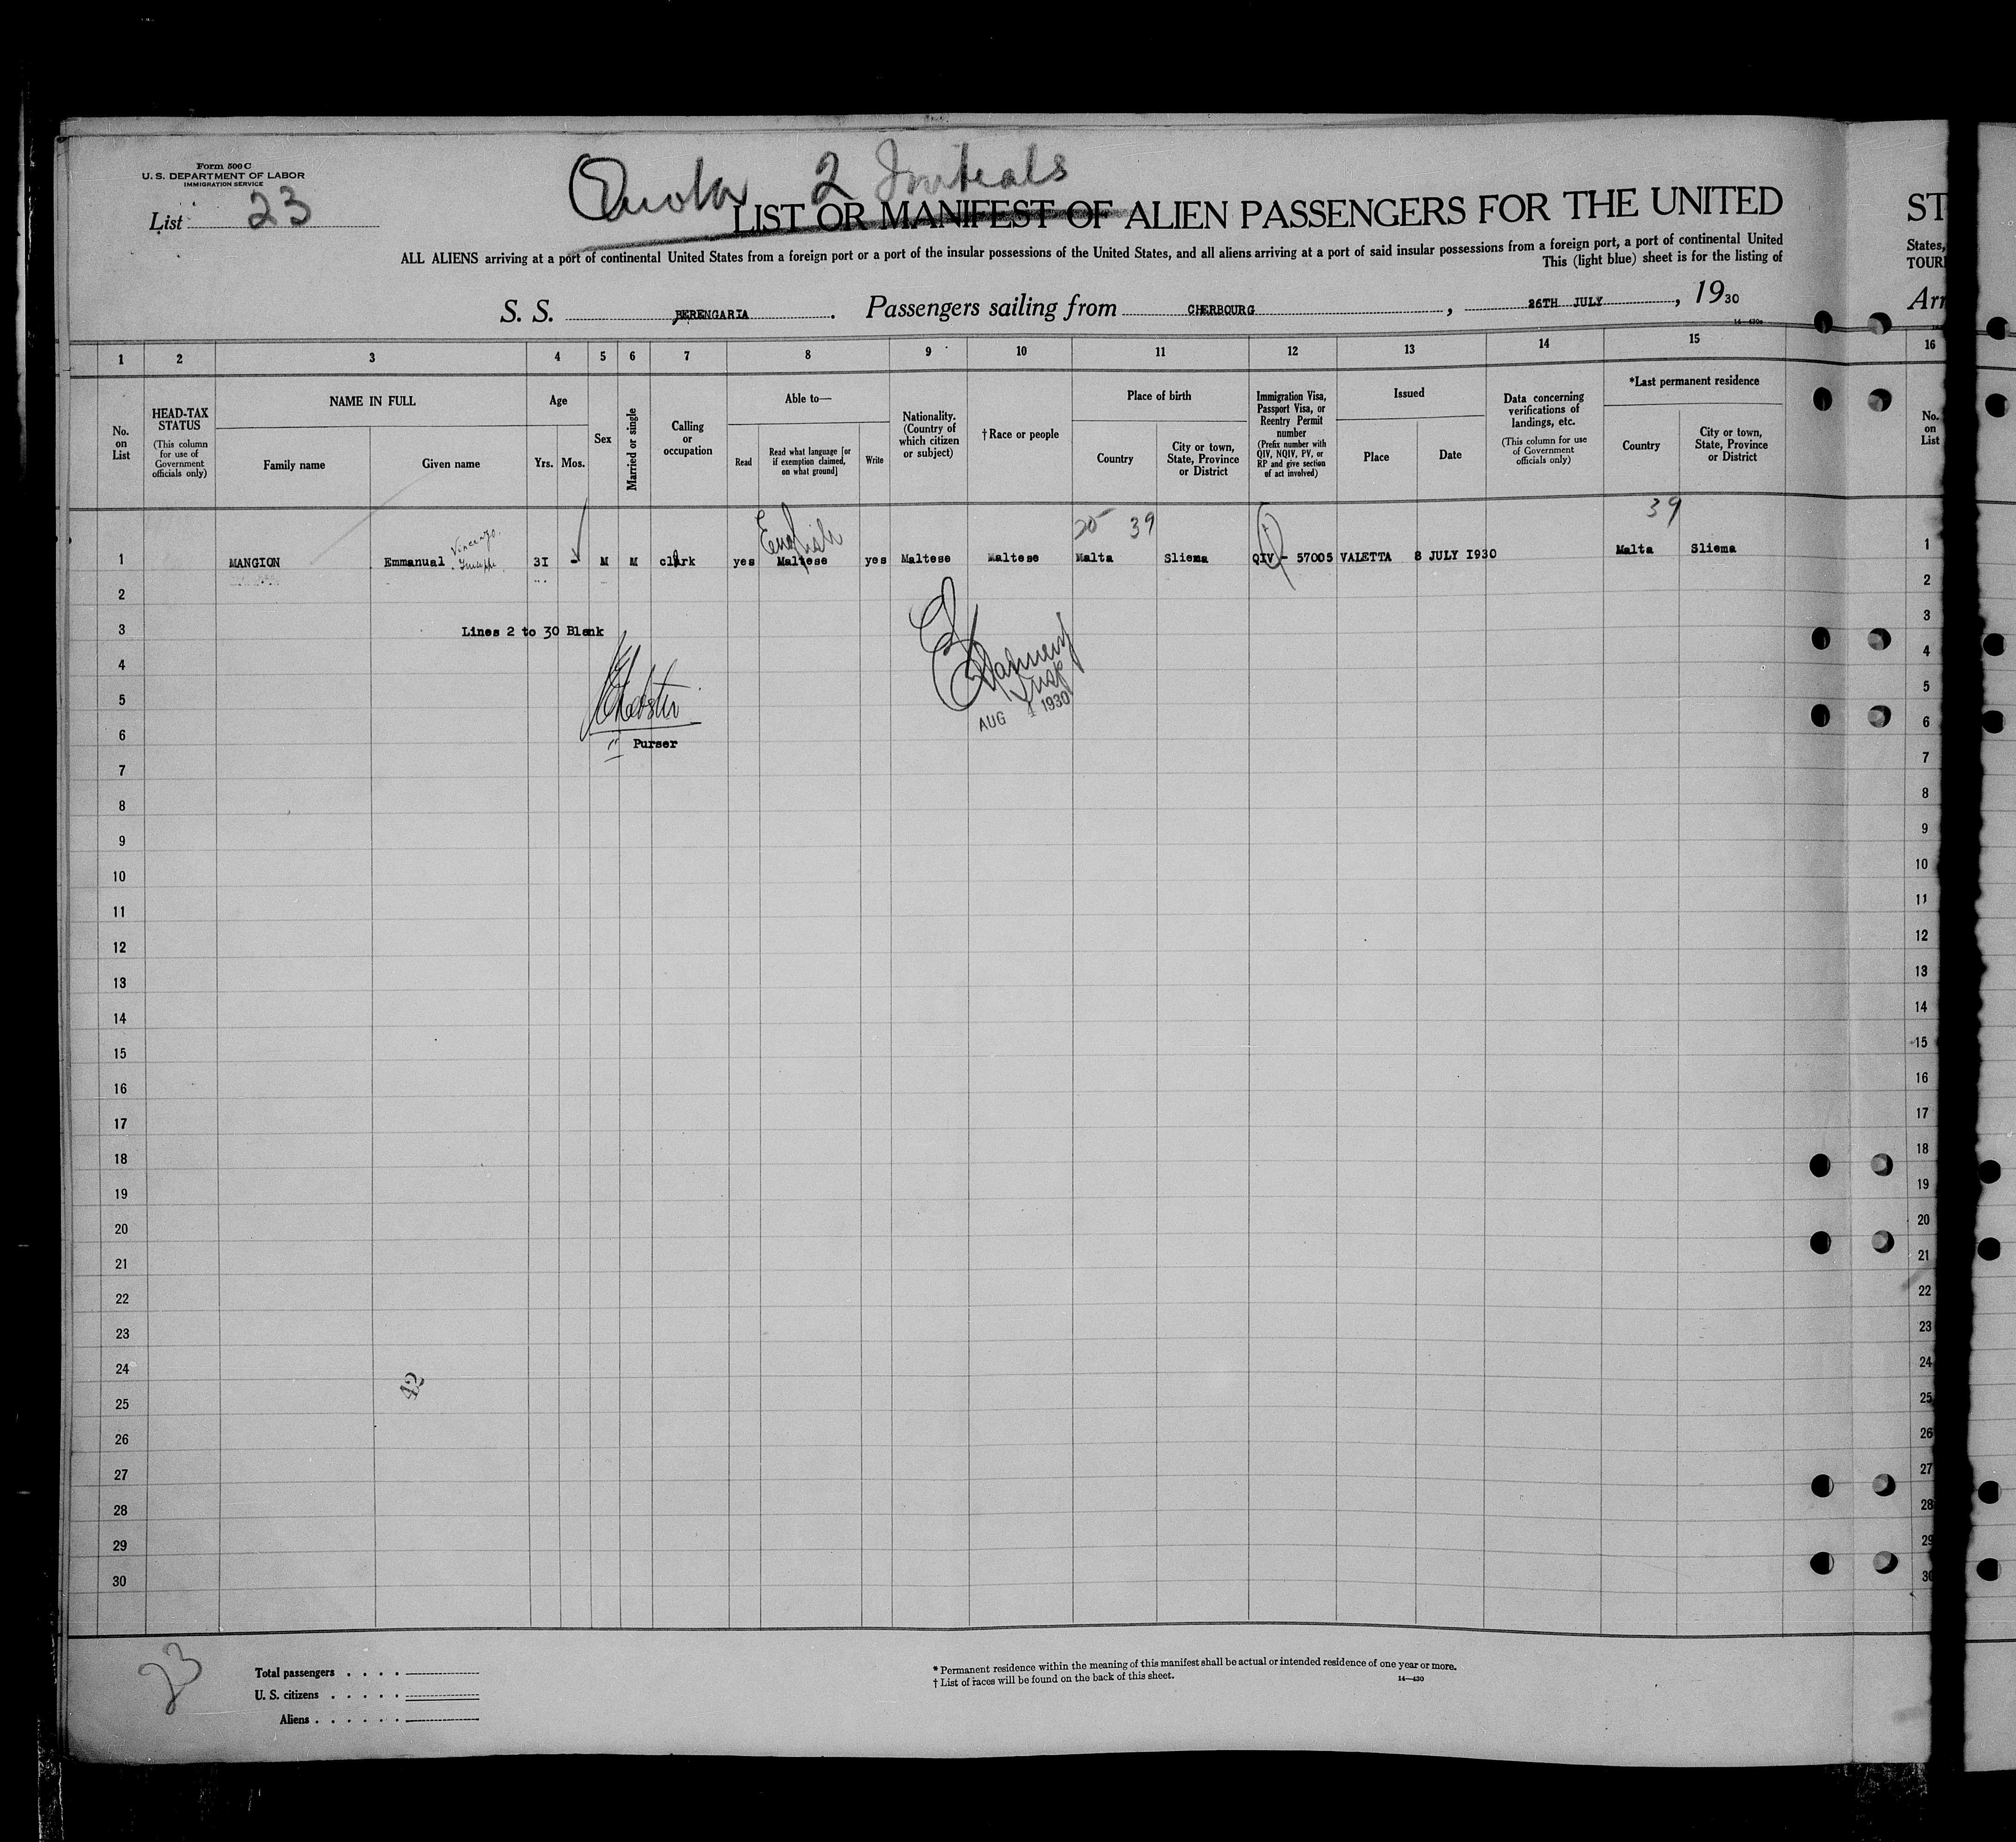 Form 500 C
U. S. DEPARTMENT OF LABOR
IMMIGRATION SERVICE
List 23
Quota 2 Initials
LIST OR MANIFEST OF ALIEN PASSENGERS FOR THE UNITED
ST
ALL ALIENS arriving at a port of continental United States from a foreign port or a port of the insular possessions of the United States, and all aliens arriving at a port of said insular possessions from a foreign port, a port of continental United
States,
This (light blue) sheet is for the listing of
TOURI
S. S. BERENGARIA. Passengers sailing from CHERBOURG, 26TH JULY, 1930
Arr
1 2 3 4 5 6 7 8 9 10 11 12 13 14 15 16
No. on List
HEAD-TAX STATUS
(This column for use of Government officials only)
NAME IN FULL
Family name
Given name
Age
Yrs.
Mos.
Sex
Married or single
Calling or occupation
Able to—
Read
Read what language [or if exemption claimed, on what ground]
Write
Nationality. (Country of which citizen or subject)
† Race or people
Place of birth
Country
City or town, State, Province or District
Immigration Visa, Passport Visa, or Reentry Permit number
(Prefix number with QIV, NQIV, PV, or RP and give section of act involved)
Issued
Place
Date
Data concerning verifications of landings, etc.
(This column for use of Government officials only)
*Last permanent residence
Country
City or town, State, Province or District
No. on List
39
39
English
Vincenzo
1 MANGION Emmanual 3I - M M clerk yes Maltese yes Maltese Maltese Malta Sliema QIV - 57005 VALETTA 8 JULY I930 Malta Sliema 1
2 2
3 Lines 2 to 30 Blank 3
4 4
5 Insp 5
6 AUG 1 1930 6
Purser
7 7
8 8
9 9
10 10
11 11
12 12
13 13
14 14
15 15
16 16
17 17
18 18
19 19
20 20
21 21
22 22
23 23
24 24
42
25 25
26 26
27 27
28 28
29 29
30 30
23
Total passengers . . . .
U. S. citizens . . . . .
Aliens . . . . . .
* Permanent residence within the meaning of this manifest shall be actual or intended residence of one year or more.
† List of races will be found on the back of this sheet.
14—430